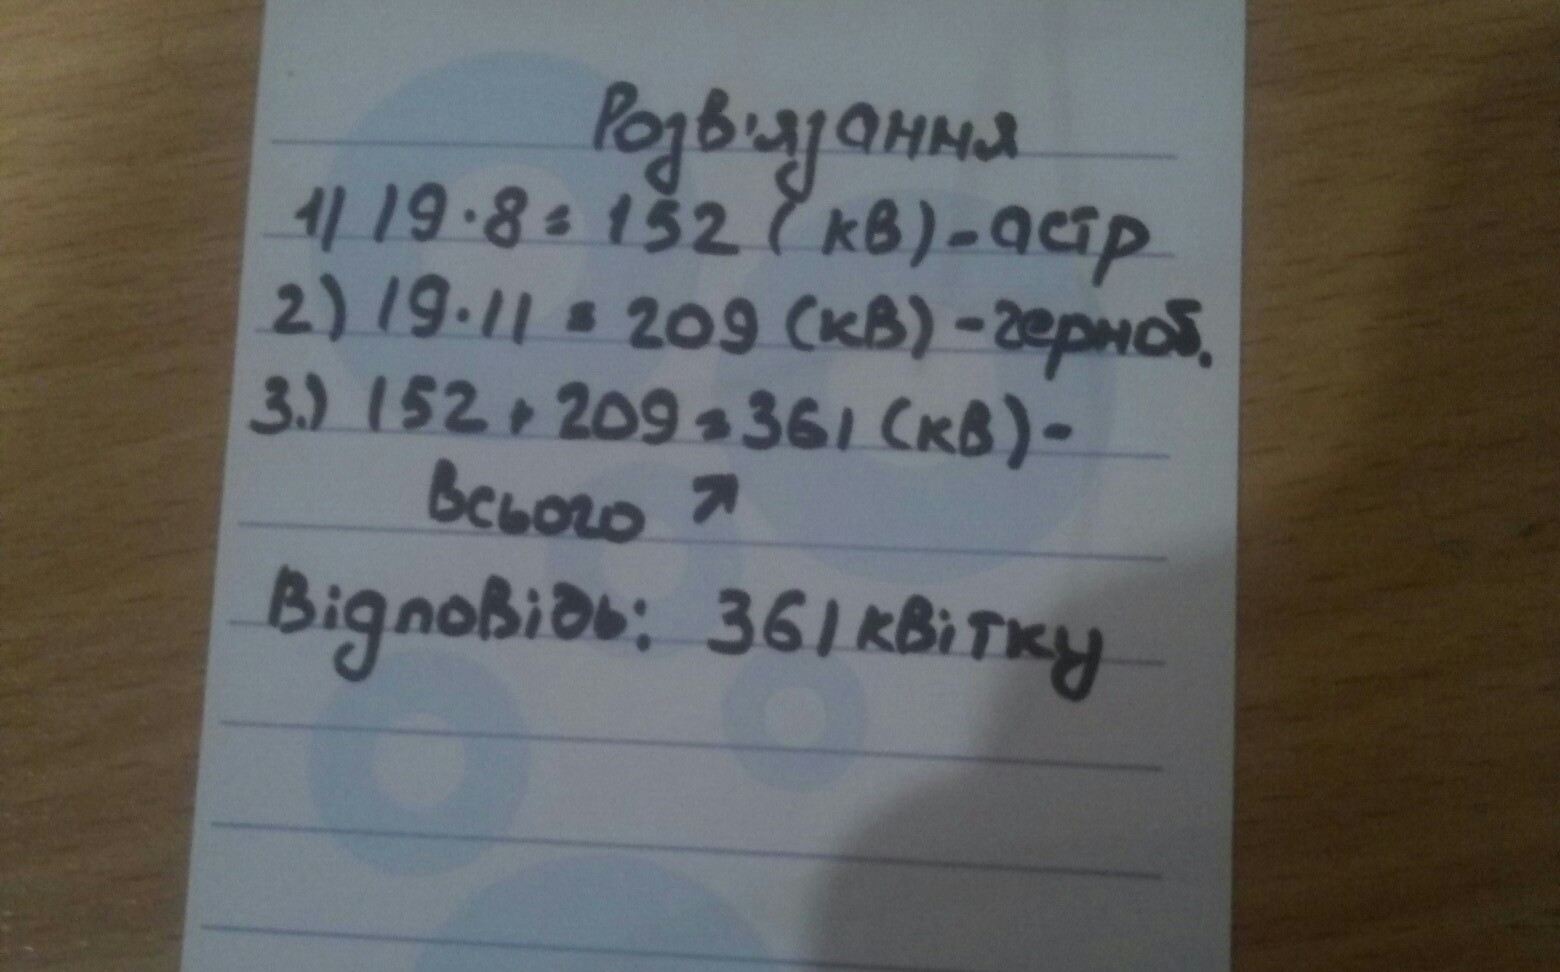 Розв'язання
1) 19·8=152 (кв)-астр
2) 19·11=209 (кв)-черноб.
3.) 152+209=361 (кв)-
Всього ↗
Відповідь: 361 квітку